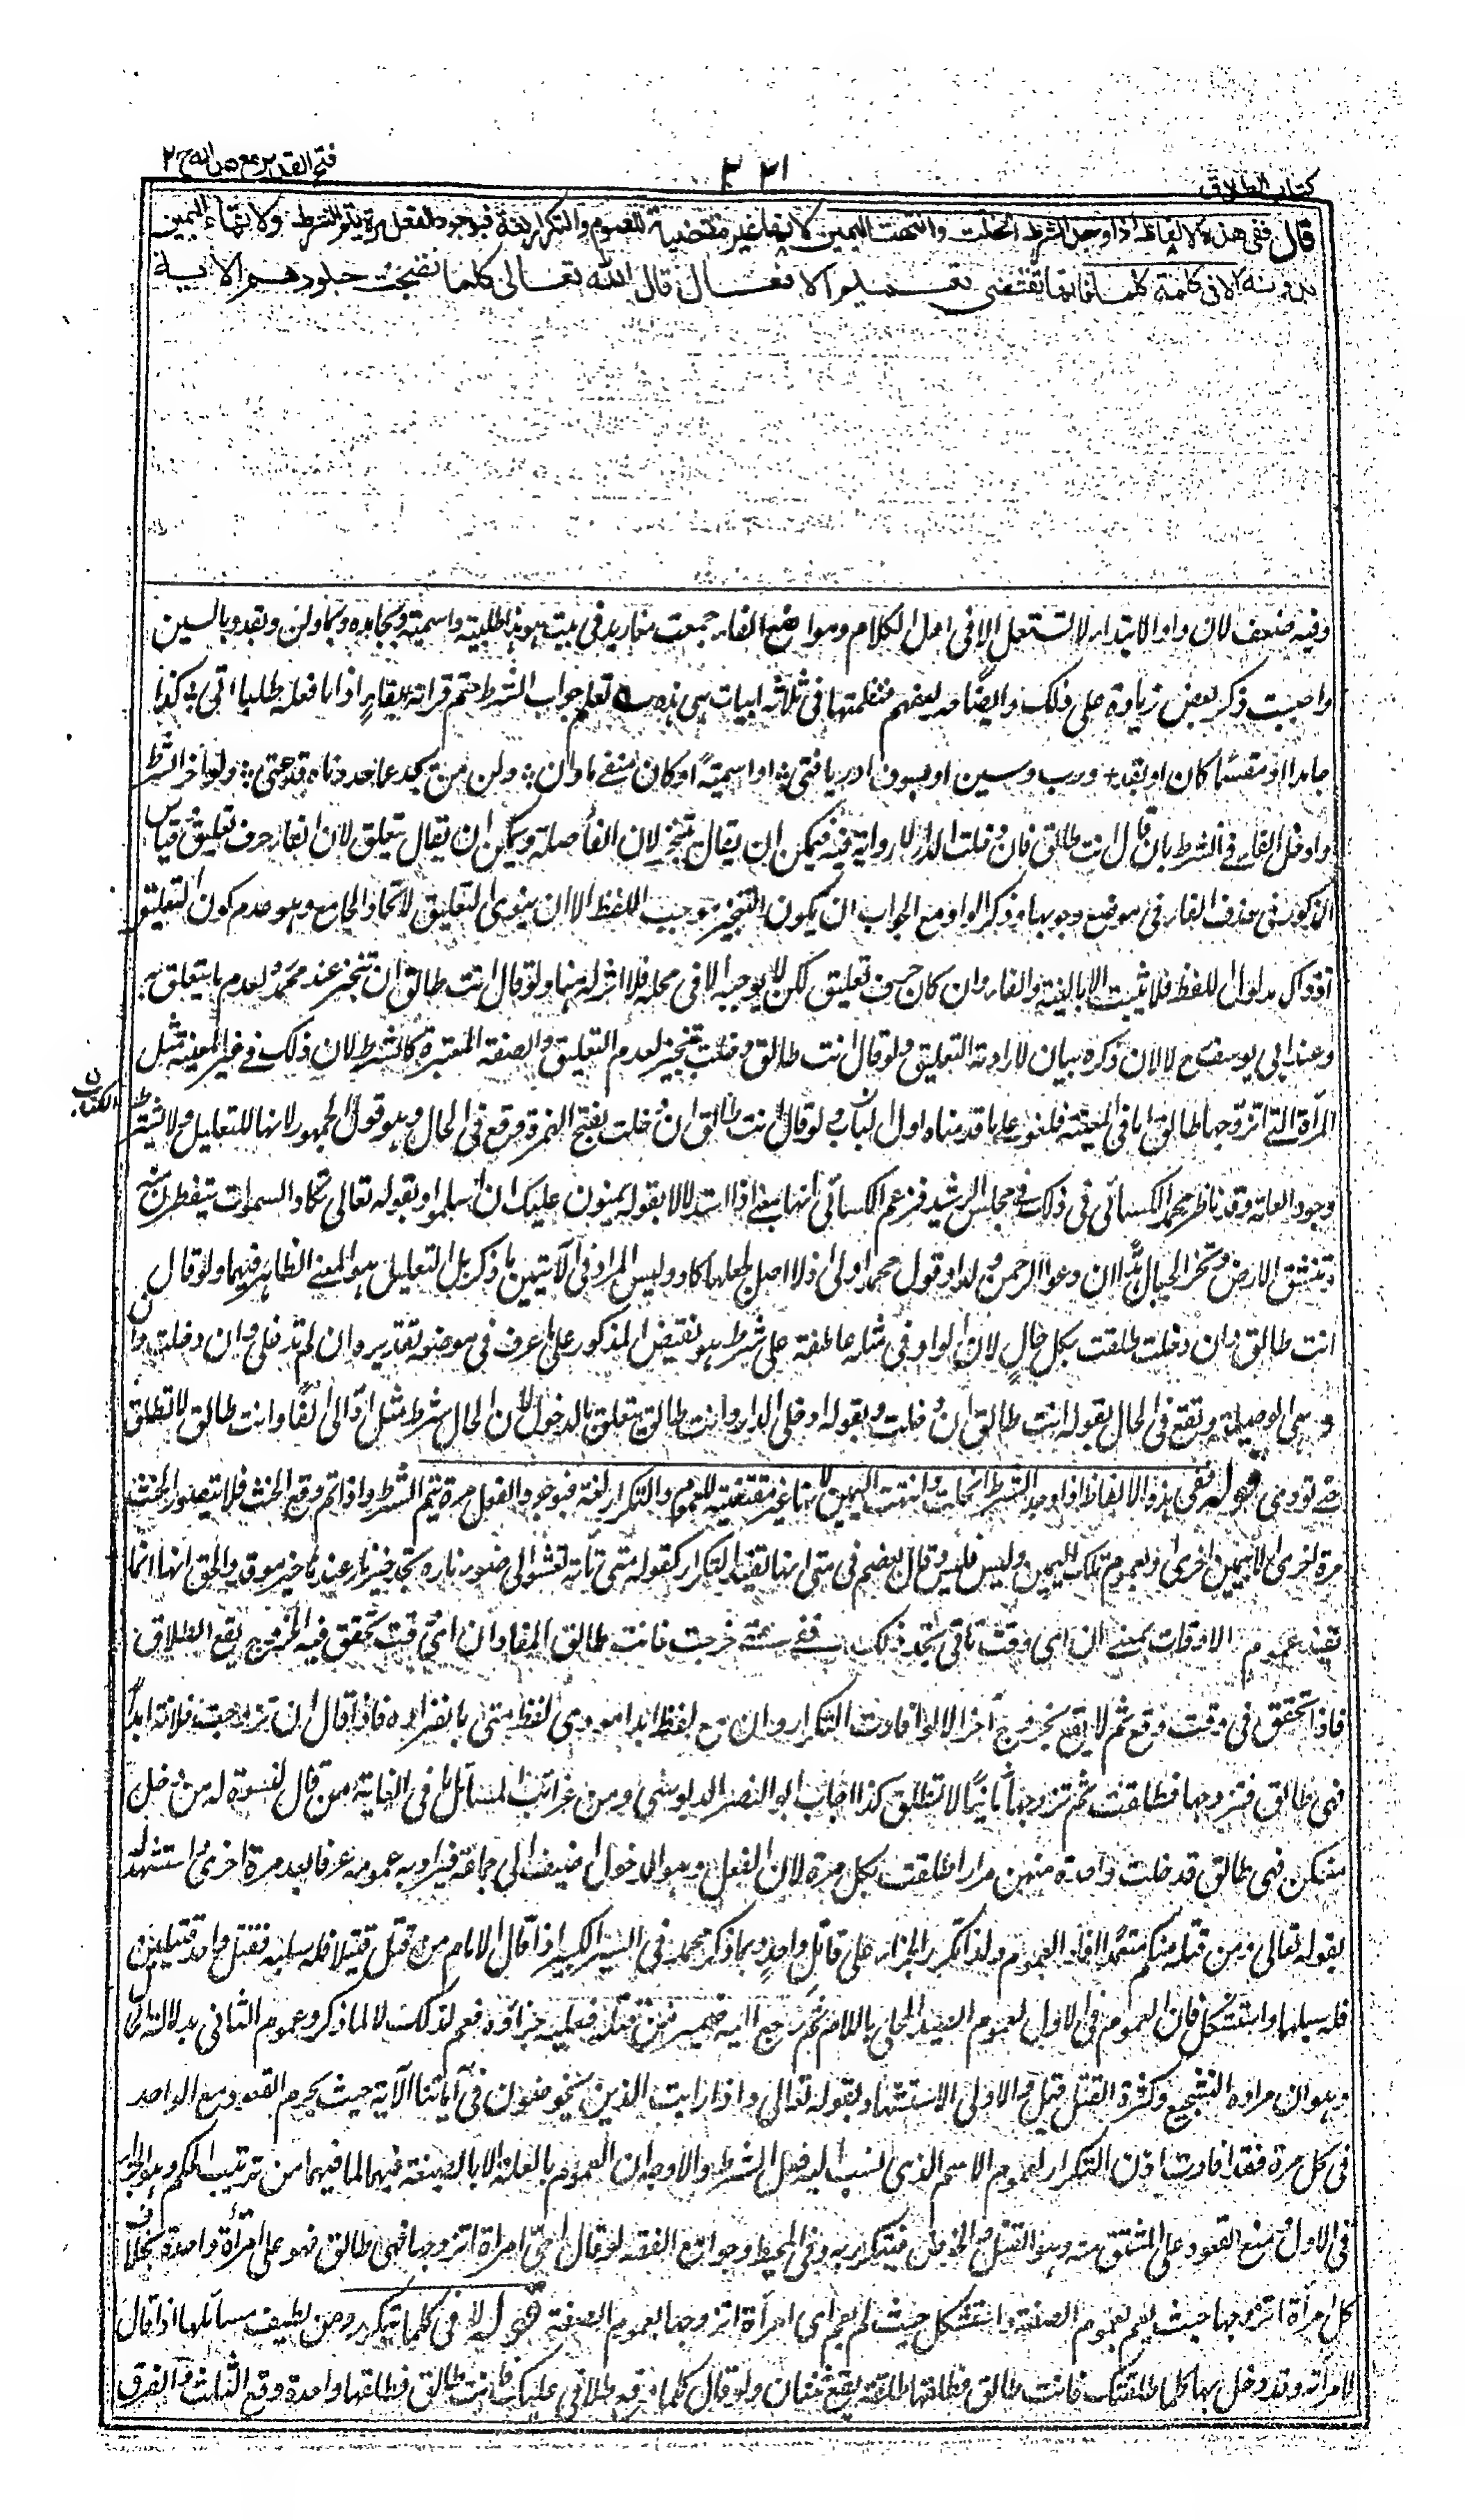 كتاب الطلاق
٢٢١
فتح القدير مع هدايه ج ٢
قال ففي هذه الالفاظ اذا وجد الشرط انحلت وانتهت اليمين لانها غير مقتضية للعموم والتكرار لغة فبوجود الفعل مرة يتم الشرط ولا بقاء لليمين
بدونه الا في كلمة كلما فانها تقتضي تعميم الافعال قال الله تعالى كلما نضجت جلودهم الاية
وفيه ضعف لان واو الابتداء لا تستعمل الا في اول الكلام ومواضع الفاء جمعت مفاريد في بيت هو هذا طلبية واسمية وبجامد وبما ولن وبقد وبالسين
واحببت ذكر بعض زيادة على ذلك وايضاحه لبعضهم فنظمتها في ثلاثة ابيات هي هذه تعلم جواب الشرط حتم قرانه بفاء اذا ما فعله طلبا اتى كذا
جامدا او مقسما كان او بقد ورب وسين او بسوف ادر يا فتى او اسمية او كان منفي ما وان ولن من يحد عما حددناه قد عتى ولو اخر الشرط
وادخل الفاء في الشرط بان قال انت طالق فان دخلت الدار لا رواية فيه فيمكن ان يقال يتنجز لان الفاء فاصلة ويمكن ان يقال يتعلق لان الفاء حرف تعليق وقياس
المذكور في حذف الفاء في موضع وجوبها وذكر الواو مع الجواب ان يكون التنجيز موجب اللفظ الا ان ينوي التعليق لاتحاد الجامع وهو عدم كون التعليق
اذ ذاك مدلول اللفظ فلا يثبت الا بالنية والفاء وان كان حرف تعليق لكن لا يوجبه الا في محله فلا اثر له هنا ولو قال انت طالق ان تنجز عند محمد لعدم ما يتعلق به
وعند ابي يوسف ح لا لان ذكره بيان لارادة التعليق ولو قال انت طالق دخلت تنجز لعدم التعليق والصفة المعتبرة كالشرط لان ذلك في غير المعينة مثل
المرأة التي اتزوجها طالق اما في المعينة فلغو على ما قدمناه اول الباب ولو قال انت طالق ان دخلت بفتح الهمزة وقع في الحال وهو قول الجمهور لانها للتعليل ولا يشترط
وجود العلة وقد ناظر محمد الكسائي في ذلك في مجلس الرشيد فزعم الكسائي انها بمعنى اذا استدلالا بقوله يمنون عليك ان اسلموا وبقوله تعالى تكاد السموات يتفطرن منه
وتنشق الارض وتخر الجبال هدا ان دعوا للرحمن ولدا وقول محمد اولى اذ لا اصل لجعلها كاد وليس المراد في الآيتين ما ذكر بل التعليل هو المعنى الظاهر فيهما ولو قال
انت طالق وان دخلت طلقت بكل حال لان الواو في مثله عاطفة على شرط هو نقيض المذكور على ما عرف في موضعه تقديره ان لم تدخلي وان دخلت وان
هي الوصلية وتقع في الحال بقوله انت طالق ان دخلت وبقوله ادخلي الدار وانت طالق يتعلق بالدخول لان الحال شرط مثل ادي الي الفا وانت طالق لا تطلق
حتى تؤدي قوله ففي هذه الالفاظ اذا وجد الشرط انحلت وانتهت اليمين لانها غير مقتضية للعموم والتكرار لغة فبوجود الفعل مرة يتم الشرط واذا تم وقع الحنث فلا يتصور الحنث
مرة اخرى الا بيمين اخرى او بعموم تلك اليمين وليس فليس وقال بعضهم في متى انها تفيد التكرار كقوله متى تأته تعشو الى ضوء ناره تجد خير نار عندها خير موقد والحق انها انما
تفيد عموم الاوقات بمعنى ان اي وقت تأتي تجد ذلك ففي متى خرجت فانت طالق المفاد ان اي وقت تحقق فيه الخروج يقع الطلاق
فاذا تحقق في وقت وقع ثم لا يقع بخروج آخر الا لو افادت التكرار وان مع لفظ ابدا مؤدى لفظ متى بانفراده فاذا قال ان تزوجت فلانة ابدا
فهي طالق فتزوجها فطلقت ثم تزوجها ثانيا لا تطلق كذا اجاب ابو النصر الدبوسي ومن غرائب المسائل في الغاية من قال لنسوة له من دخل
منكن فهي طالق فدخلت واحدة منهن مرارا طلقت بكل مرة لان الفعل وهو الدخول اضيف الى جماعة فيراد به عمومه عرفا بعد مرة اخرى استشهد له
بقوله تعالى ومن قتله منكم متعمدا افاد العموم ولذا تكرر الجزاء على قاتل واحد وبما ذكر محمد في السير الكبير اذا قال الامام من قتل قتيلا فله سلبه فقتل واحد قتيلين
فله سلبهما واستشكل فان العموم في الاول لعموم الصيد المحلى باللام ثم رجع اليه ضمير من قتله فعليه جزاؤه فعم لذلك لا لما ذكر وعموم الثاني بدلالة الحال
وهو ان مراده التشجيع وكثرة القتل قيل والاولى الاستشهاد بقوله تعالى واذا رأيت الذين يخوضون في آياتنا الآية حيث يحرم القعود مع الواحد
في كل مرة فقد افادت اذن التكرار لعموم الاسم الذي نسب اليه فعل الشرط والاوجه ان العموم بالعلة لا بالصيغة فيهما لما فيهما من ترتيب الحكم وهو الجزاء
في الاول ومنع القعود على المشتق منه وهو القتل والخوض فيتكرر به وفي المحيط وجوامع الفقه لو قال اي امرأة اتزوجها فهي طالق فهو على امرأة واحدة بخلاف
كل امرأة اتزوجها حيث يعم بعموم الصفة واستشكل حيث لم يعم اي امرأة اتزوجها بعموم الصفة قوله الا في كلما يتكرر ومن لطيف مسائلها اذا قال
لامرأته وقد دخل بها كلما طلقتك فانت طالق فطلقها طلقة يقع ثنتان ولو قال كلما وقع طلاقي عليك فانت طالق فطلقها واحدة وقع الثلث والفرق